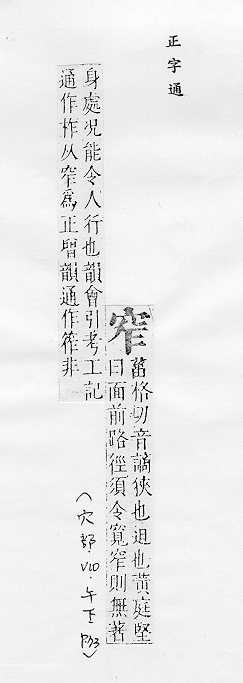 正字通
窄
菑格切音謫狹也迫也黃庭堅
曰面前路徑須令寬窄則無著
身處况能令人行也韻會引考工記
通作柞从窄為正增韻通作筰非
(穴部·V10·午下P33)